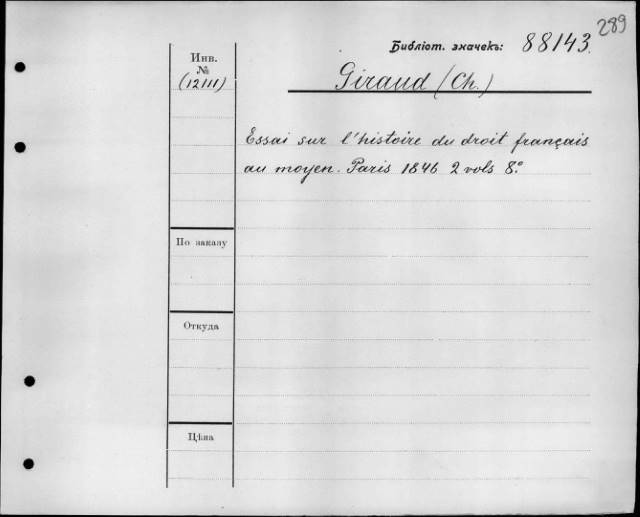 289
Библіот. значекъ: 88143.
Инв.
№
(12111)
Giraud (Ch.)
Essai sur l'histoire du droit français
au moyen. Paris 1846 2 vols 8°
По заказу
Откуда
Цѣна